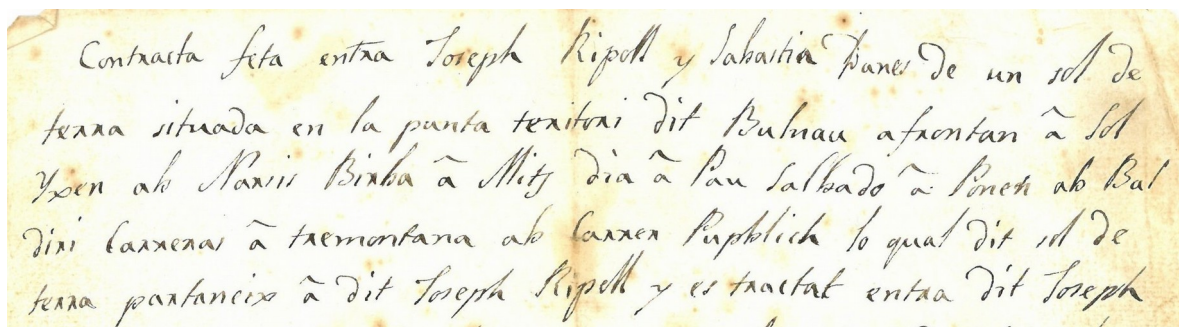 Contracta feta entra Joseph Ripoll y Sabastia Danes de un sol de
terra situada en la punta teritori dit Bulnau afrontan â Sol
Yxen ab Narsis Birba â Mitj dia â Pau Salbado â Ponen ab Bal
diri Carreras â tremontana ab Carrer Pupblich lo qual dit sol de
terra partaneix â dit Joseph Ripoll y es tractat entra dit Joseph